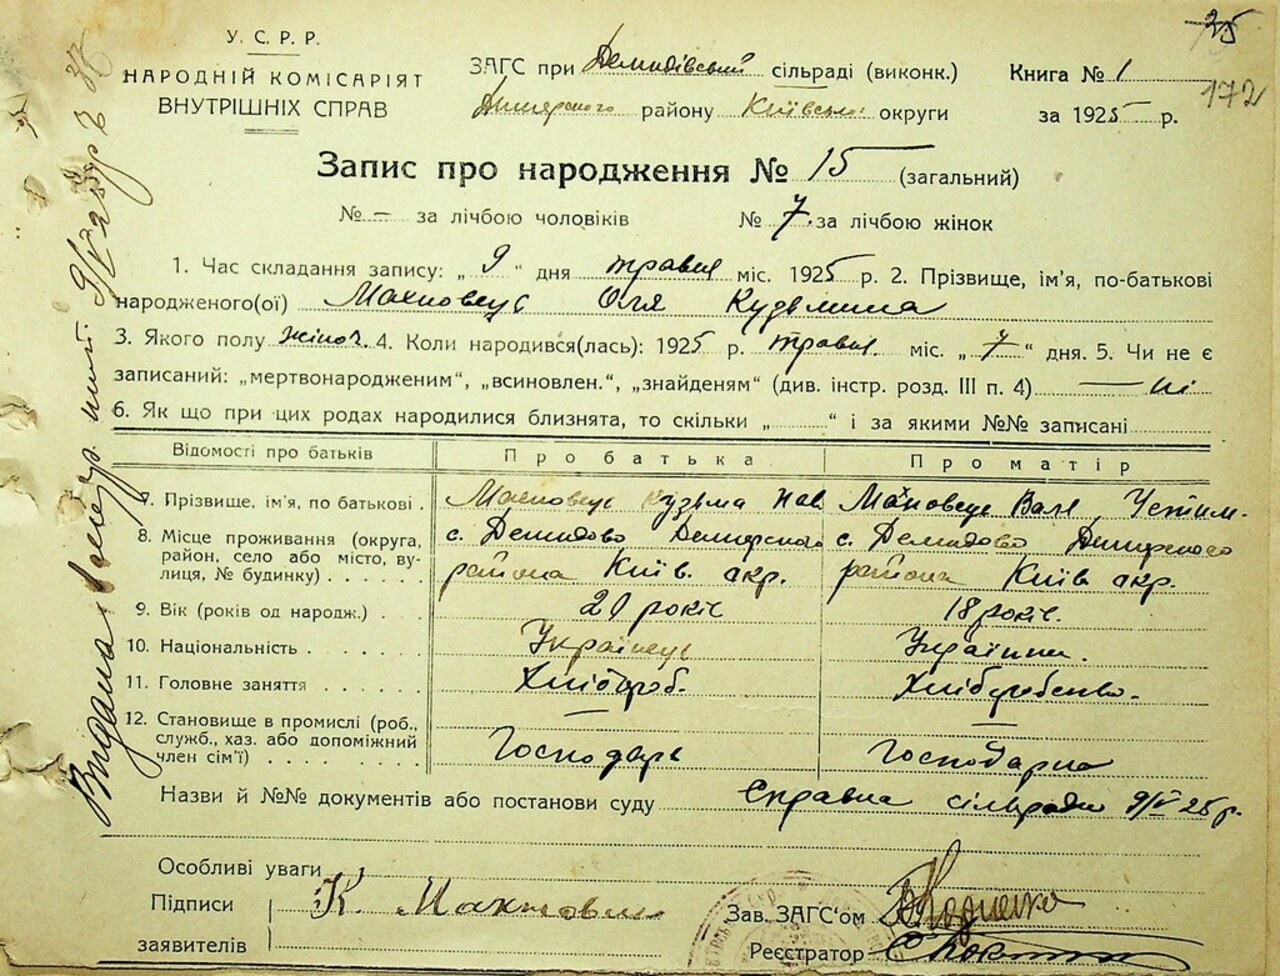 У. С. Р. Р.
НАРОДНІЙ КОМІСАРІЯТ
ВНУТРІШНІХ СПРАВ
ЗАГС при Демидівський сільраді (виконк.)
Димерского району Київської округи
Книга № 1
за 1925 р.
25
172
Запис про народження № 15 (загальний)
№ — за лічбою чоловіків № 7 за лічбою жінок
1. Час складання запису: „ 9 “ дня травня міс. 1925 р. 2. Прізвище, ім'я, по-батькові
народженого(ої) Махновець Оля Кузьмина
3. Якого полу жіноч. 4. Коли народився(лась): 1925 р. травня міс. „ 7 “ дня. 5. Чи не є
записаний: „мертвонародженим“, „всиновлен.“, „знайденям“ (див. інстр. розд. III п. 4) — ні
6. Як що при цих родах народилися близнята, то скільки „ “ і за якими №№ записані
Відомості про батьків Про батька Про матір
7. Прізвище, ім'я, по батькові . Махновець Кузьма Махновець Валя Устим.
8. Місце проживання (округа, с. Демидово Демирского с. Демидово Демирского
район, село або місто, ву-
лиця, № будинку) . . . . . . района Київ. окр. района Київ окр.
9. Вік (років од народж.) . . 20 років 18 років.
10. Національність . . . . . . Українець Українка.
11. Головне заняття . . . . . . Хлібороб. Хліборобство.
12. Становище в промислі (роб., — —
служб., хаз. або допоміжний
член сім'ї) . . . . . . . . Господарь Господарка
Назви й №№ документів або постанови суду Справка сільради 9/V 25 р.
Особливі уваги
Підписи К. Махновець
заявителів
Зав. ЗАГС'ом
Реєстратор
Видана